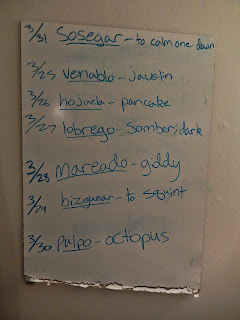 3/31 Sosegar - to calm one down
3/25 venablo - javelin
3/26 hojuela - pancake
3/27 lobrego - somber/dark
3/28 Mareado - giddy
3/29 bizguear - to squint
3/30 Pulpo - octopus